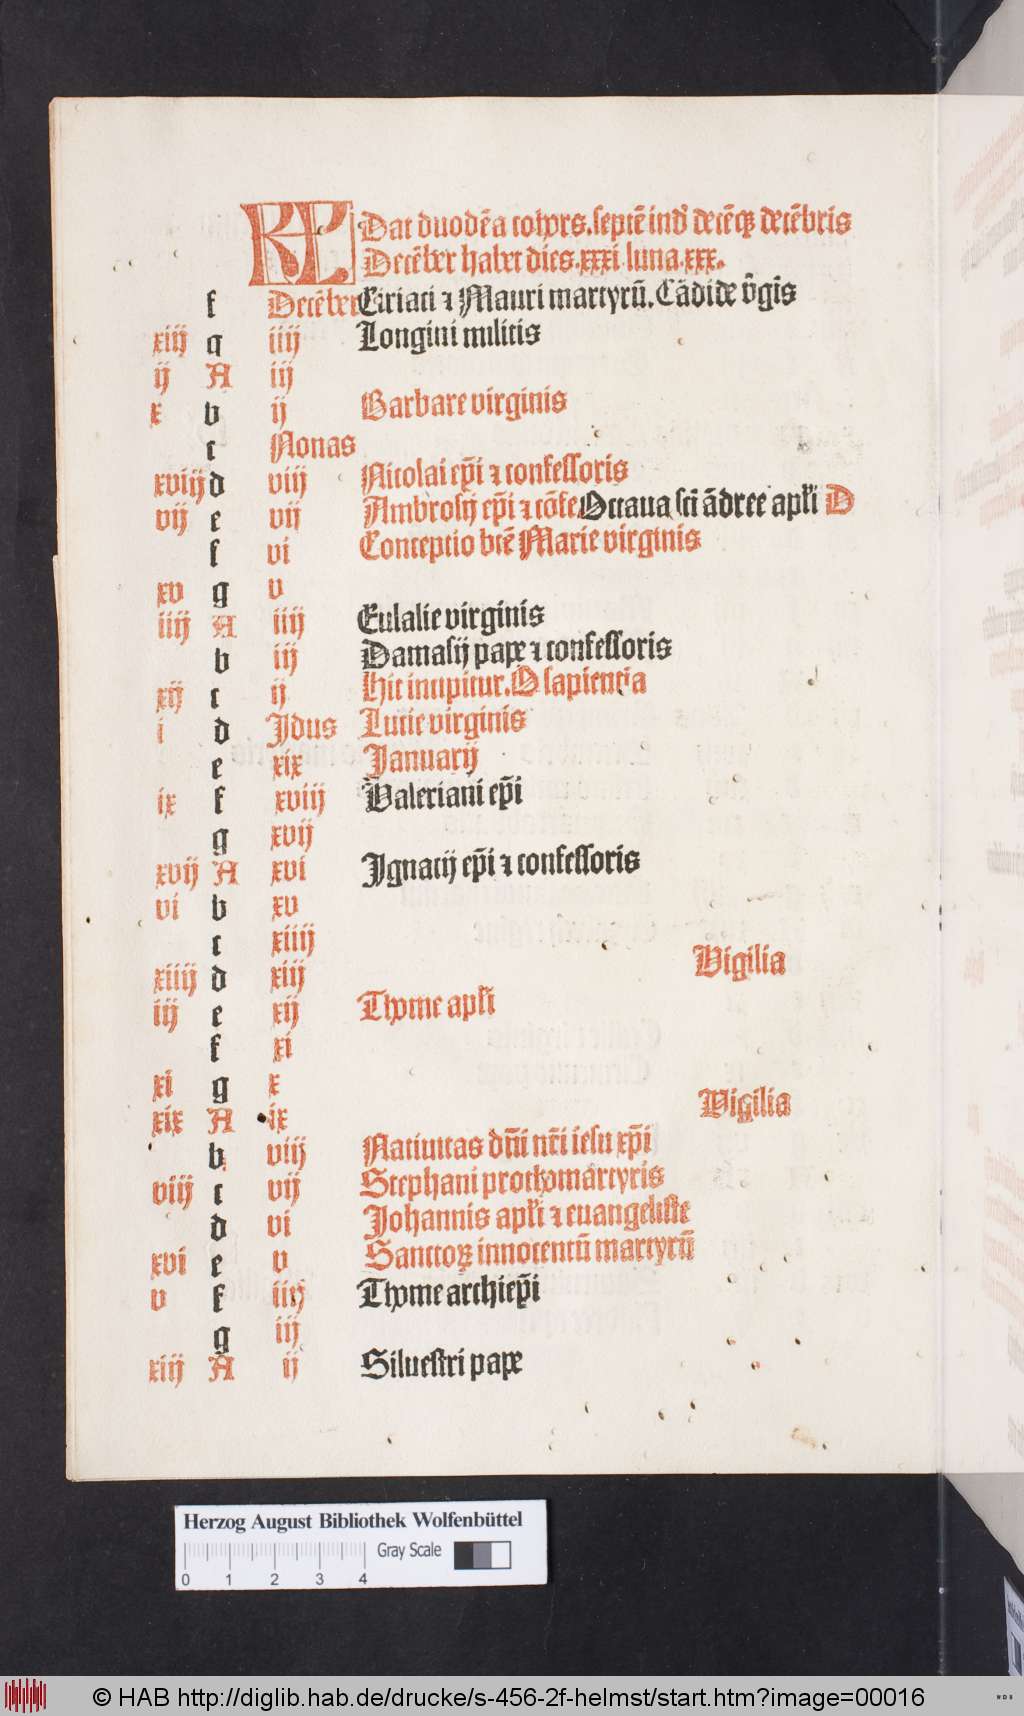 KL Dat duodēa cohors. septē indꝰ decēqꝫ decēbris
Decēber habet dies .xxxi luna .xxx.
f Decēber Ciriaci ⁊ Mauri martyrū. Cādide v̄gīs
xiij g iiij Longini militis
ij A iij
x b ij Barbare virginis
c Nonas
xviij d viij Nicolai ep̄i ⁊ confessoris
vij e vij Ambrosij ep̄i ⁊ cōfe Octaua sc̄i ādree apl̄i D
f vi Conceptio btē Marie virginis
xv g v
iiij A iiij Eulalie virginis
b iij Damasij pape ⁊ confessoris
xij c ij Hic incipitur. O sapientia
i d Jdus Lucie virginis
e xix Januarij
ix f xviij Valeriani ep̄i
g xvij
xvij A xvi Jgnacij ep̄i ⁊ confessoris
vi b xv
c xiiij
xiiij d xiij Vigilia
iij e xij Thome apl̄i
f xi
xi g x
xix A ix Vigilia
b viij Natiuitas dn̄i nr̄i iesu xp̄i
viij c vij Stephani prothomartyris
d vi Johannis apl̄i ⁊ euangeliste
xvi e v Sanctoꝝ innocentū martyrū
v f iiij Thome archiep̄i
g iij
xiij A ij Siluestri pape
Herzog August Bibliothek Wolfenbüttel
Gray Scale
0 1 2 3 4
© HAB http://diglib.hab.de/drucke/s-456-2f-helmst/start.htm?image=00016